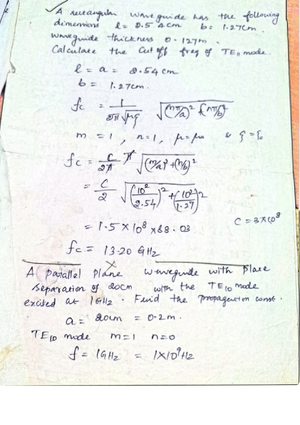 A rectangular waveguide has the following
dimensions l = 2.54cm b = 1.27cm.
waveguide thickness 0.127m.
Calculate the Cut off freq of TE₁₁ mode.
l = a = 2.54cm
b = 1.27cm.
fc = 1/2π√με √(mπ/a)² + (nπ/b)²
m = 1, n = 1, μ = μ₀
fc = c/2π π √(m/a)² + (n/b)²
= C/2 √(10²/2.54)² + (10²/1.27)²
= 1.5 × 10⁸ × 88.03 C = 3×10⁸
fc = 13.20 GHz
A parallel plane waveguide with plate
separation of 20cm with the TE₁₀ mode
excited at 1GHz. Find the propagation const.
a = 20cm = 0.2m.
TE₁₀ mode m=1 n=0
f = 1GHz = 1×10⁹Hz